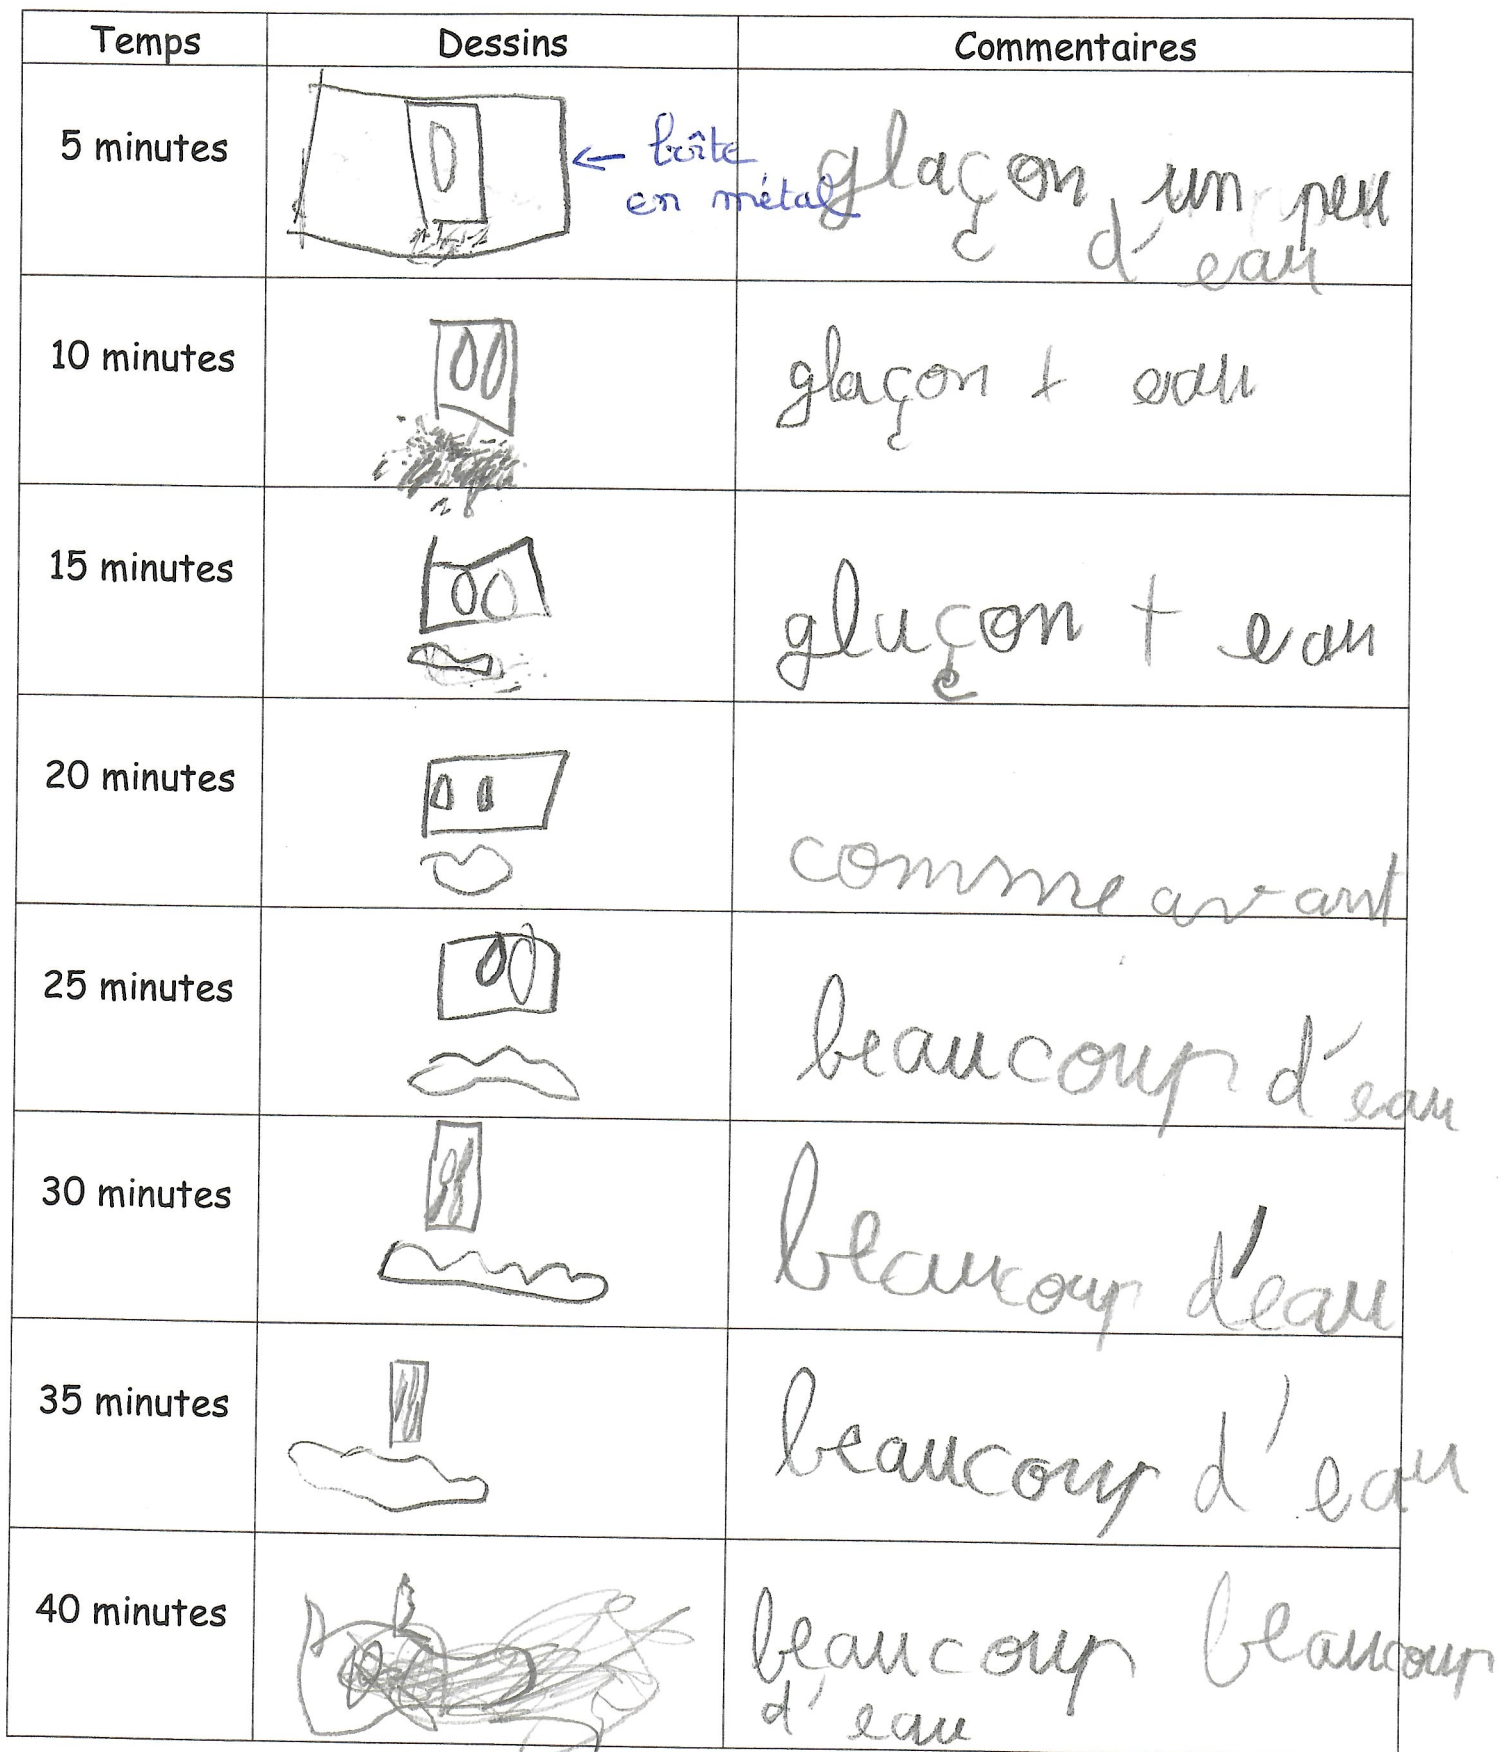 Temps Dessins Commentaires
5 minutes ← boîte glaçon, un peu
en métal d'eau
10 minutes glaçon + eau
15 minutes gluçon + eau
20 minutes comme avant
25 minutes beaucoup d'eau
30 minutes beaucoup d'eau
35 minutes beaucoup d'eau
40 minutes beaucoup beaucoup
d'eau